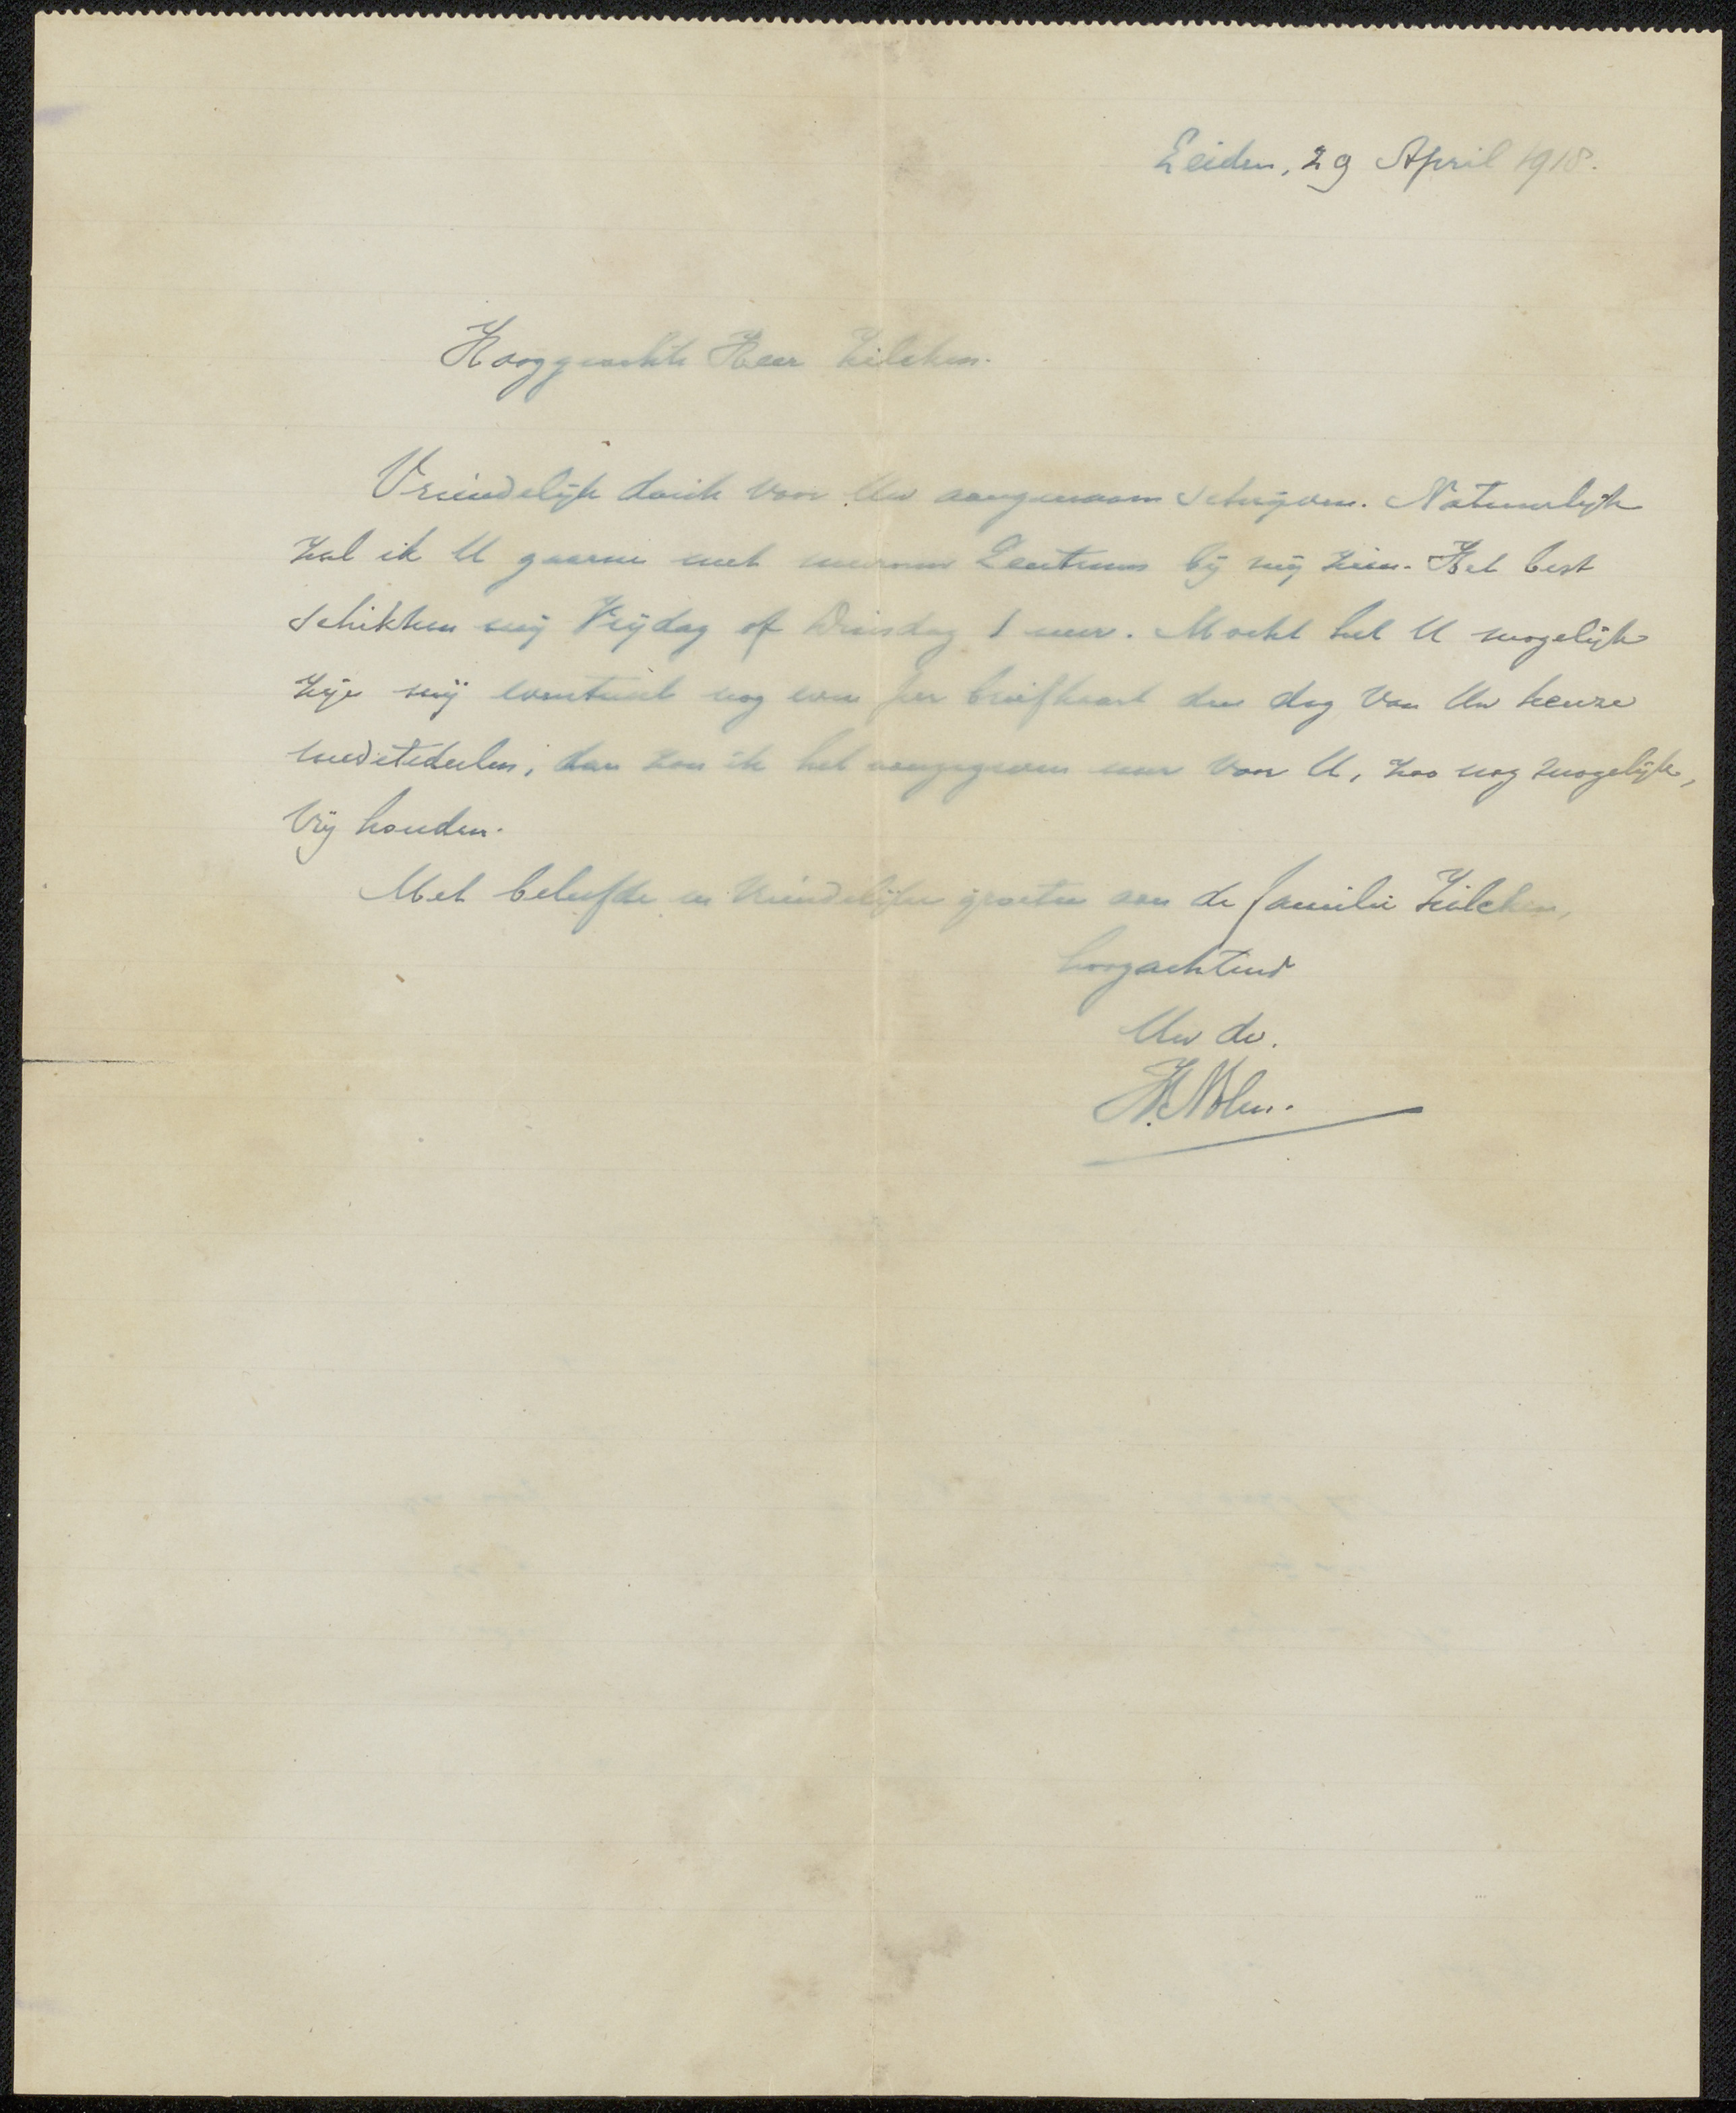 Leiden, 29 April 1918.
Hooggeachte Heer Zilcken.
Vriendelijk dank voor Uw aangenaam schrijven. Natuurlijk
zal ik U gaarne met bij mij zien. Het best
schikken mij Vrijdag of Dinsdag 1 uur. Mocht het U mogelijk
zijn mij eventueel nog even per briefkaart den dag van Uw keuze
medetedeelen, dan zou ik het aangegeven uur voor U, zoo nog mogelijk,
vrij houden.
Met beleefde en vriendelijke groeten aan de familie Zilcken,
hoogachtend
Uw dv.